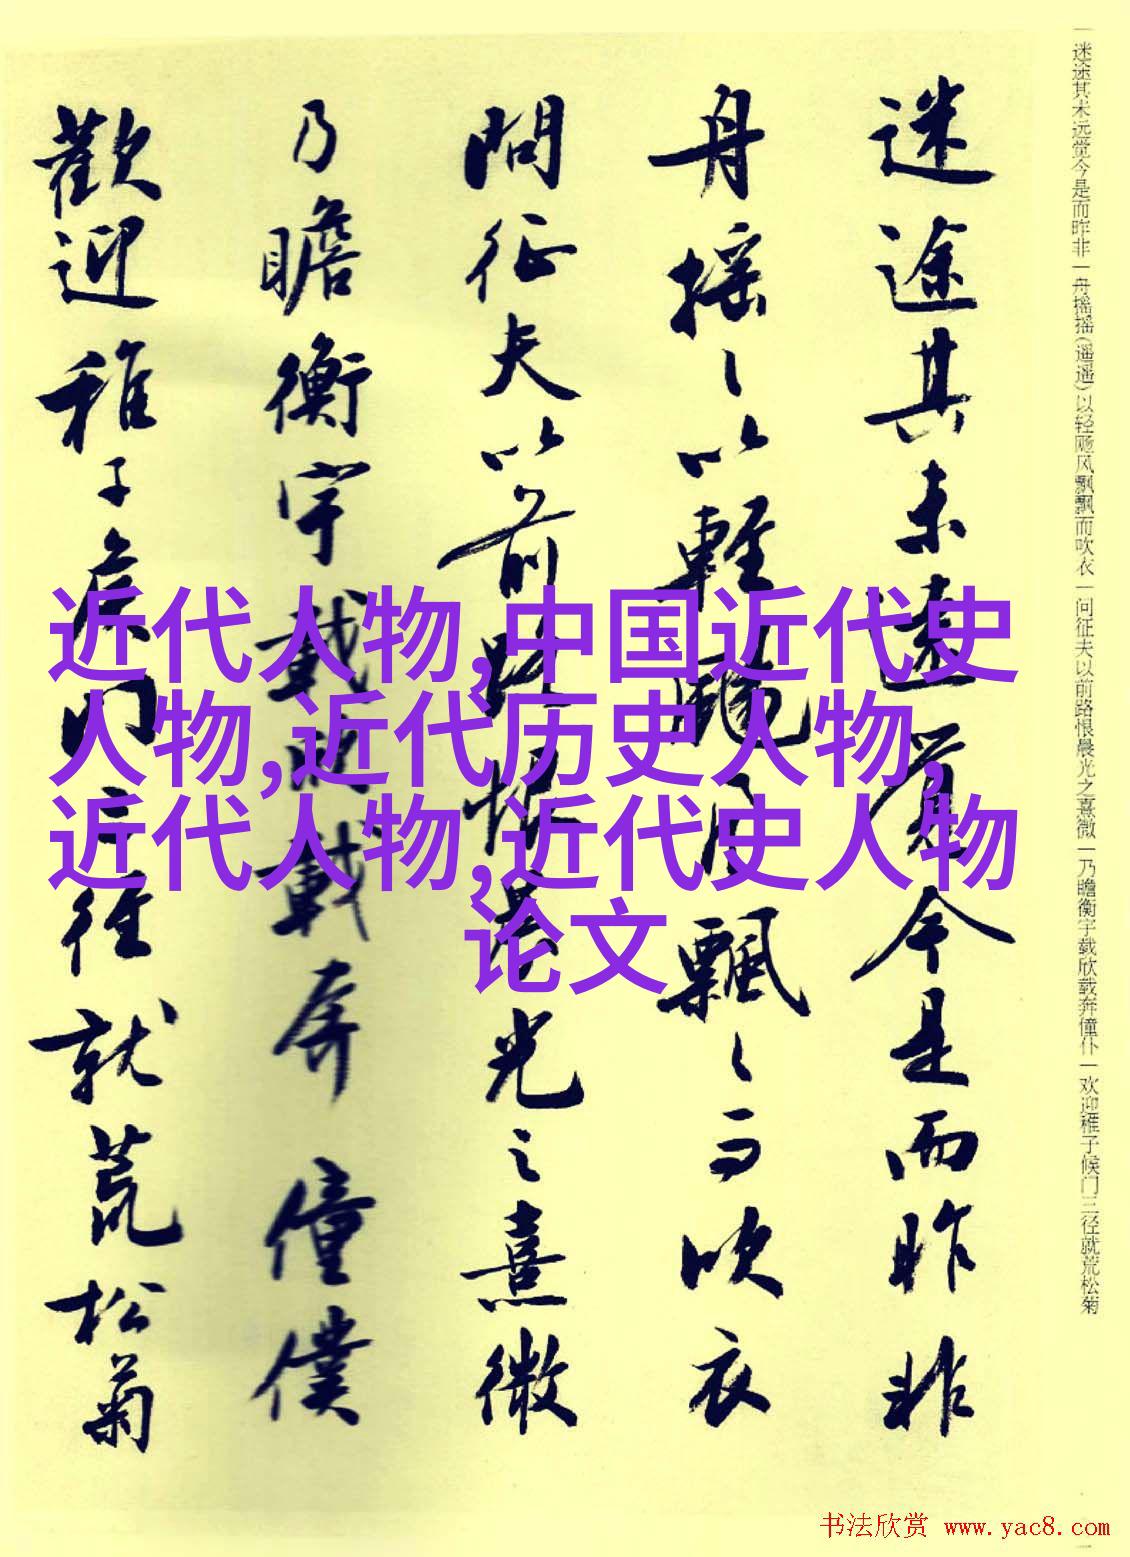 迷途其未遠覺今是而昨非
舟搖〻以輕颺風飄〻而吹衣
問征夫以前路恨晨光之熹微
乃瞻衡宇載欣載奔僮僕
歡迎稚子候門三徑就荒松菊
一迷途其未远觉今是而昨非一舟摇摇(遥遥)以轻飏风飘飘而吹衣一问征夫以前路恨晨光之熹微一乃瞻衡宇载欣载奔僮仆一欢迎稚子候门三径就荒松菊
近代人物,中国近代史
人物,近代历史人物,
近代人物,近代史人物
论文
书法欣赏 www.yac8.com